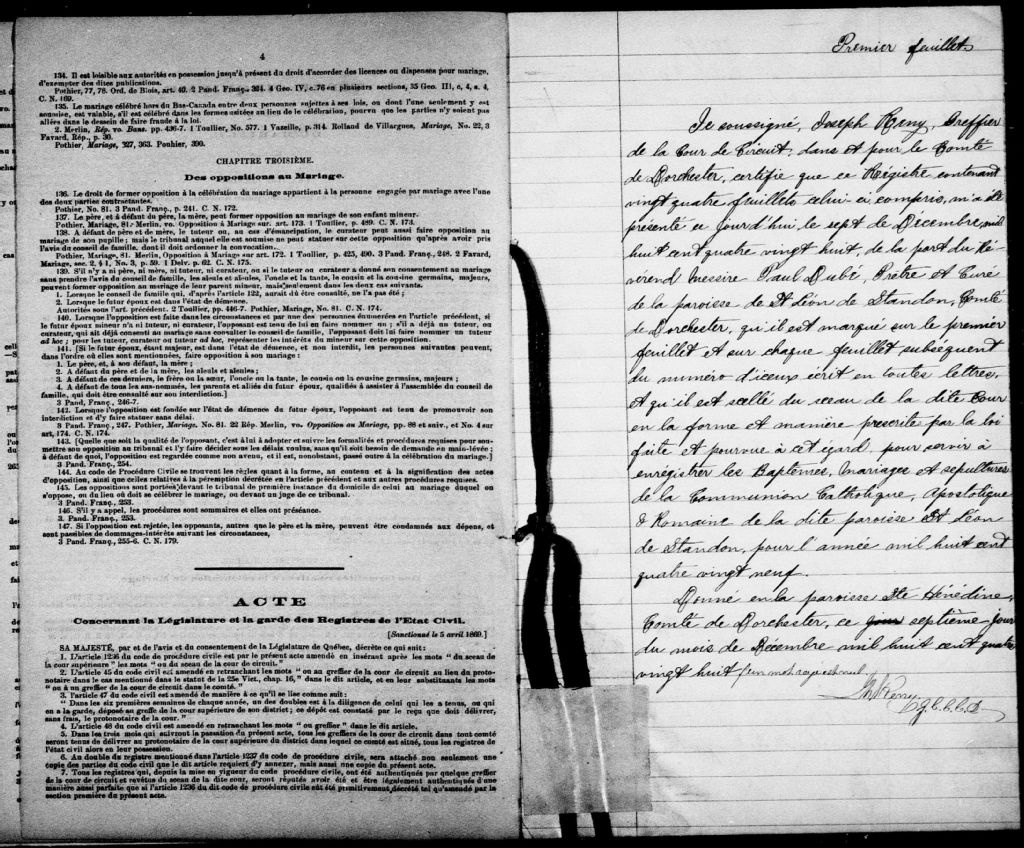 4
134. Il est loisible aux autorités en possession jusqu'à présent du droit d'accorder des licences ou dispenses pour mariage,
d'exempter des dites publications.
Pothier, 77, 78. Ord. de Blois, art. 40. 2 Pand. Franç., 324. 4 Geo. IV, c. 76 en plusieurs sections, 35 Geo. III, c, 4, s. 4,
C. N. 169.
135. Le mariage célébré hors du Bas-Canada entre deux personnes sujettes à ses lois, ou dont l'une seulement y est
soumise, est valable, s'il est célébré dans les formes usitées au lieu de la célébration, pourvu que les parties n'y soient pas
allées dans le dessein de faire fraude à la loi.
2 Merlin, Rép. vo. Bans. pp. 436-7. 1 Toullier, No. 577. 1 Vazeille, p. 314. Rolland de Villargues, Mariage, No. 22, 3
Favard, Rép., p. 30.
Pothier, Mariage, 327, 363. Pouhier, 390.
CHAPITRE TROISIÈME.
Des oppositions au Mariage.
136. Le droit de former opposition à la célébration du mariage appartient à la personne engagée par mariage avec l'une
des deux parties contractantes.
Pothier, No. 81. 3 Pand. Franç., p. 241. C. N. 172.
137. Le père, et à défaut du père, la mère, peut former opposition au mariage de son enfant mineur.
Pothier, Mariage, 81. Merlin, vo. Opposition à Mariage sur. art. 173. 1 Toullier, p. 489. C. N. 173.
138. A défaut de père et de mère, le tuteur ou, au cas d'émancipation, le curateur peut aussi faire opposition au
mariage de son pupille; mais le tribunal auquel elle est soumise ne peut statuer sur cette opposition qu'après avoir pris
l'avis du conseil de famille, dont il doit ordonner la convocation.
Pothier, Mariage, 81. Merlin, Opposition à Mariage sur art. 172. 1 Toullier, p. 425, 490. 3 Pand. Franç., 248. 2 Favard,
Mariage, sec. 2, § 1, No. 3, p. 59. 1 Delv. p. 62. C. N. 175.
139. S'il n'y a ni père, ni mère, ni tuteur, ni curateur, ou si le tuteur ou curateur a donné son consentement au mariage
sans prendre l'avis du conseil de famille, les aïeuls et aïeules, l'oncle et la tante, le cousin et la cousine germains, majeurs,
peuvent former opposition au mariage de leur parent mineur, mais seulement dans les deux cas suivants.
1. Lorsque le conseil de famille qui, d'après l'article 122, aurait dû être consulté, ne l'a pas été;
2. Lorsque le futur époux est dans l'état de démence.
Autorités sous l'art. précédent. 2 Toullier, pp. 446-7. Pothier, Mariage, No. 81. C. N. 174.
140. Lorsque l'opposition est faite dans les circonstances et par une des personnes énumérées en l'article précédent, si
le futur époux mineur n'a ni tuteur, ni curateur, l'opposant est tenu de lui en faire nommer un; s'il a déjà un tuteur, ou
curateur, qui ait déjà consenti au mariage sans consulter le conseil de famille, l'opposant doit lui faire nommer un tuteur
ad hoc; pour les tuteur, curateur ou tuteur ad hoc, représenter les intérêts du mineur sur cette opposition.
141. [Si le futur époux, étant majeur, est dans l'état de démence, et non interdit, les personnes suivantes peuvent,
dans l'ordre où elles sont mentionnées, faire opposition à son mariage:
1. Le père, et, à son défaut, la mère;
2. A défaut du père et de la mère, les aïeuls et aïeules;
3. A défaut de ces derniers, le frère ou la sœur, l'oncle ou la tante, le cousin ou la cousine germains, majeurs;
4. A défaut de tous les sus-nommés, les parents et alliés du futur époux, qualifiés à assister à l'assemblée du conseil de
famille, qui doit être consulté sur son interdiction.]
3 Pand. Franç., 246-7.
142. Lorsque l'opposition est fondée sur l'état de démence du futur époux, l'opposant est tenu de promouvoir son
interdiction et d'y faire statuer sans délai.
3 Pand. Franç., 247. Pothier, Mariage. No. 81. 22 Rép. Merlin, vo. Opposition au Mariage, pp. 88 et suiv., et No. 4 sur
art, 174. C. N. 174.
143. [Quelle que soit la qualité de l'opposant, c'est à lui à adopter et suivre les formalités et procédures requises pour sou-
mettre son opposition au tribunal et l'y faire décider sous les délais voulus, sans qu'il soit besoin de demande en main-levée;
à défaut de quoi, l'opposition est regardée comme non avenu, et il est, nonobstant, passé outre à la célébration du mariage.]
3 Pand. Franç., 254.
144. Au code de Procédure Civile se trouvent les règles quant à la forme, au contenu et à la signification des actes
d'opposition, ainsi que celles relatives à la péremption décrétée en l'article précédent et aux autres procédures requises.
145. Les oppositions sont portées devant le tribunal de première instance du domicile de celui au mariage duquel on
s'oppose, ou du lieu où doit se célébrer le mariage, ou devant un juge de ce tribunal.
3 Pand. Franç., 253.
146. S'il y a appel, les procédures sont sommaires et elles ont préséance.
3 Pand. Franç., 253.
147. Si l'opposition est rejetée, les opposants, autres que le père et la mère, peuvent être condamnés aux dépens, et
sont passibles de dommages-intérêts suivant les circonstances,
3 Pand. Franç., 255-6. C. N. 179.
ACTE
Concernant la Législature et la garde des Registres de l'Etat Civil.
[Sanctionné le 5 avril 1869.]
SA MAJESTÉ, par et de l'avis et du consentement de la Législature de Québec, décrète ce qui suit:
1. L'article 1236 du code de procédure civile est par le présent acte amendé en insérant après les mots "du sceau de
la cour supérieure" les mots "ou du sceau de la cour de circuit."
2. L'article 45 du code civil est amendé en retranchant les mots "ou au greffier de la cour de circuit au lieu du proto-
notaire dans le cas mentionné dans le statut de la 25e Vict., chap. 16," dans le dit article, et en leur substituant les mots
"ou à un greffier de la cour de circuit dans le comté."
3. l'article 47 du code civil est amendé de manière à ce qu'il se lise comme suit:
"Dans les six premières semaines de chaque année, un des doubles est à la diligence de celui qui les a tenus, ou qui
en a la garde, déposé au greffe de la cour supérieure de son district; ce dépôt est constaté par le reçu que doit délivrer,
sans frais, le protonotaire de la cour."
4. L'article 48 du code civil est amendé en retranchant les mots "ou greffier" dans le dit article.
5. Dans les trois mois qui suivront la passation du présent acte, tous les greffiers de la cour de circuit dans tout comté
seront tenus de délivrer au protonotaire de la cour supérieure du district dans lequel ce comté est situé, tous les registres de
l'état civil alors en leur possession.
6. Au double du registre mentionné dans l'article 1237 du code de procédure civile, sera attaché non seulement une
copie des parties du code civil que le dit article requiert d'y annexer, mais aussi une copie du présent acte.
7. Tous les registres qui, depuis la mise en vigueur du code procédure civile, ont été authentiqués par quelque greffier
de la cour de circuit et revêtus du sceau de la dite cour, seront réputés avoir été et être légalement authentiqués d'une
manière aussi parfaite que si l'article 1236 du dit code de procédure civile eût été primitivement décrété tel qu'amendé par la
section première du présent acte.
Premier feuillet
Je soussigné, Joseph Remy, Greffier
de la Cour de Circuit, dans et pour le Comté
de Dorchester, certifie que ce Régistre contenant
vingt quatre feuillets celui-ci compris, m'a été
présenté ce jourd'hui le sept de Décembre, mil
huit cent quatre vingt huit, de la part du Ré
vérend Messire Paul Dubé, Prêtre et Curé
de la paroisse de St Léon de Standon, Comté
de Dorchester, qu'il est marqué sur le premier
feuillet et sur chaque feuillet subséquent
du numéro d'iceux écrit en toutes lettres,
et qu'il est scellé du sceau de la dite Cour
en la forme et manière prescrite par la loi
faite et pourvue à cet égard, pour servir à
enrégistrer les Baptêmes, Mariages et sépultures
de la Communion Catholique, Apostolique
& Romaine de la dite paroisse St Léon
de Standon, pour l'année mil huit cent
quatre vingt neuf.
Donné en la paroisse Ste Hénédine,
Comté de Dorchester, ce jour septième jour
du mois de Décembre mil huit cent quatre
vingt huit